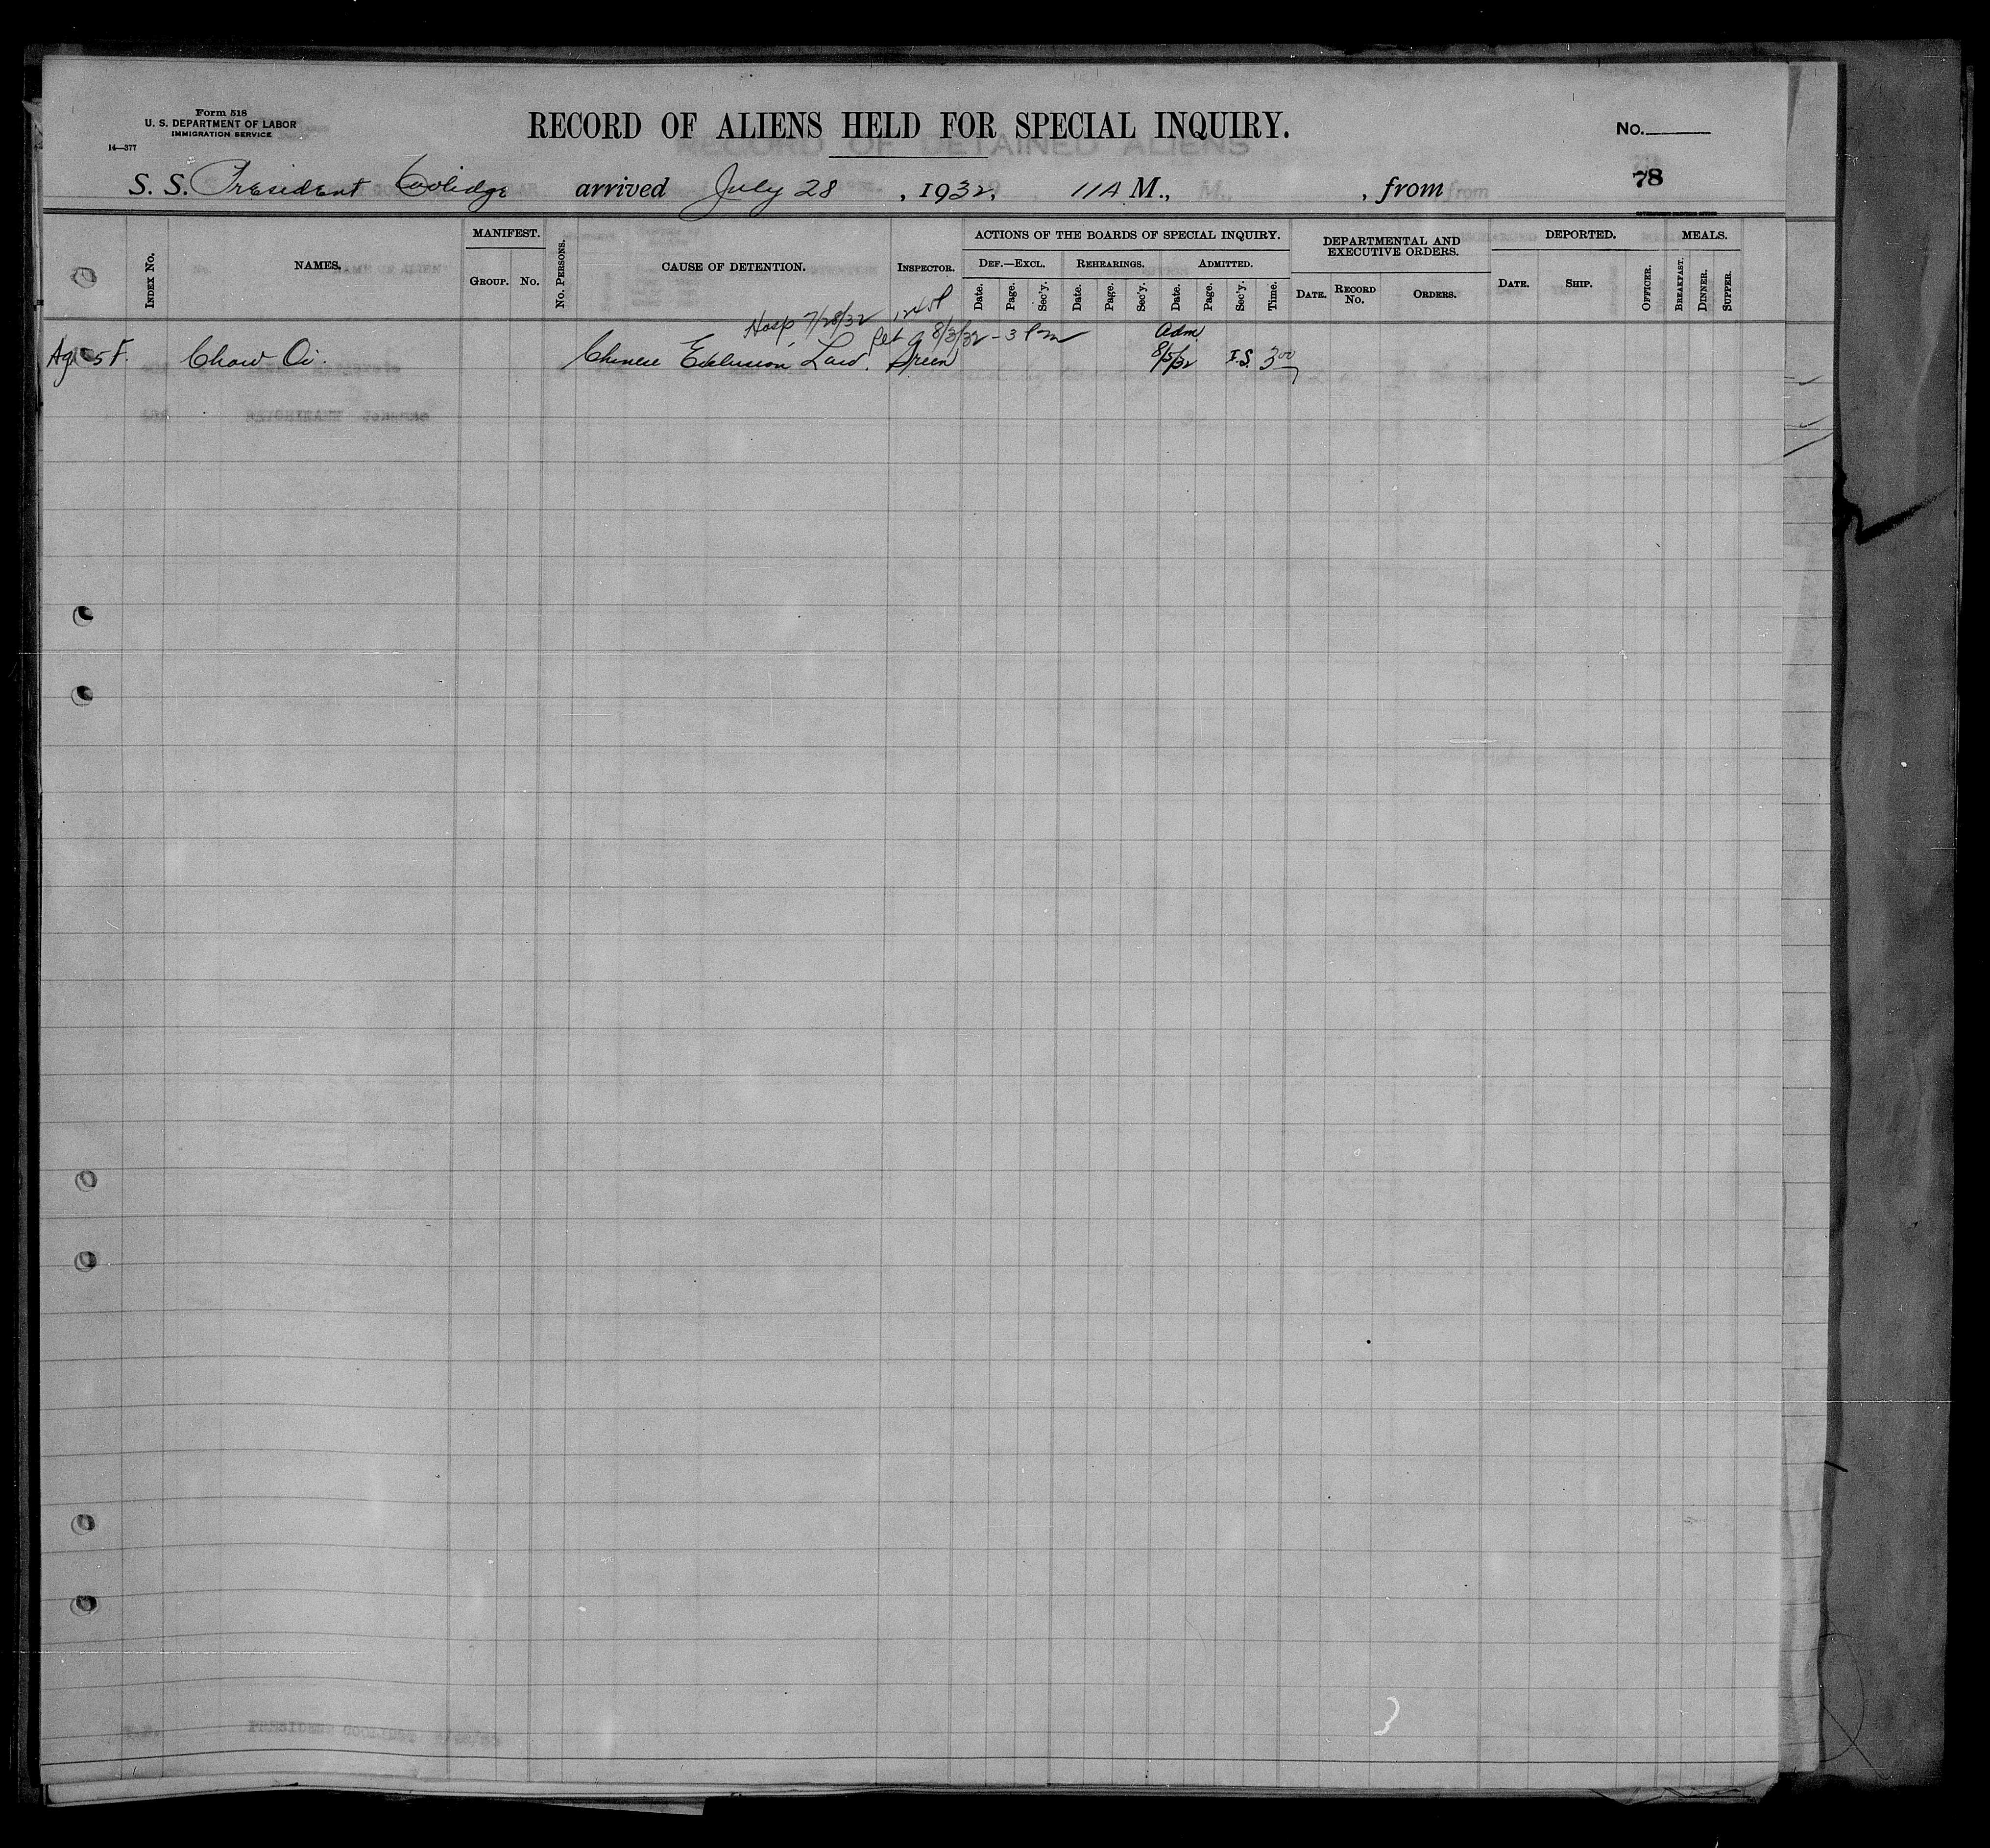 Form 518
U. S. DEPARTMENT OF LABOR
IMMIGRATION SERVICE
14—377
RECORD OF ALIENS HELD FOR SPECIAL INQUIRY.
No.
78
S. S. President Coolidge arrived July 28, 1932, 11 A M., , from
INDEX No.
NAMES.
MANIFEST.
GROUP. No.
No. PERSONS.
CAUSE OF DETENTION.
INSPECTOR.
ACTIONS OF THE BOARDS OF SPECIAL INQUIRY.
DEF.—EXCL. REHEARINGS. ADMITTED.
Date. Page. Sec'y. Date. Page. Sec'y. Date. Page. Sec'y. Time.
DEPARTMENTAL AND
EXECUTIVE ORDERS.
DATE. RECORD No. ORDERS.
DEPORTED.
DATE. SHIP. OFFICER.
MEALS.
BREAKFAST. DINNER. SUPPER.
Hosp 7/28/32
8/3/32 - 3 Pm Adm
Chow Oi. Chinese Exclusion Law. Green 8/5/32 I.S. 3 00
PRESIDENT COOLIDGE